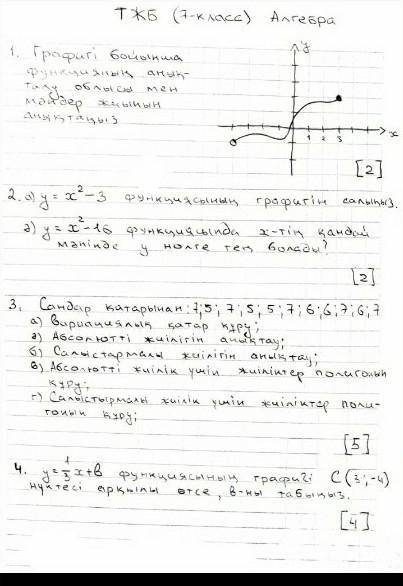 ТЖБ (7-класс) Алгебра
1. Графигі бойынша
функцияның анық-
талу облысы мен
мәндер жиынын
анықтаңыз
y
x
1 2 3
[2]
2. а) y = x² - 3 функциясының графигін салыңыз.
ә) y = x² - 16 функциясында х-тің қандай
мәнінде у нөлге тең болады?
[2]
3. Сандар қатарынан: 7; 5; 7; 5; 5; 7; 6; 6; 7; 6; 7
а) Вариациялық қатар құру;
ә) Абсолютті жиілігін анықтау;
б) Салыстармалы жиілігін анықтау;
в) Абсолютті жиілік үшін жиіліктер полигонын
құру;
г) Салыстырмалы жиілік үшін жиіліктер поли-
гонын құру;
[5]
4. y = 1/3 x + в функциясының графигі С (3; -4)
нүктесі арқылы өтсе, в-ны табыңыз.
[4]